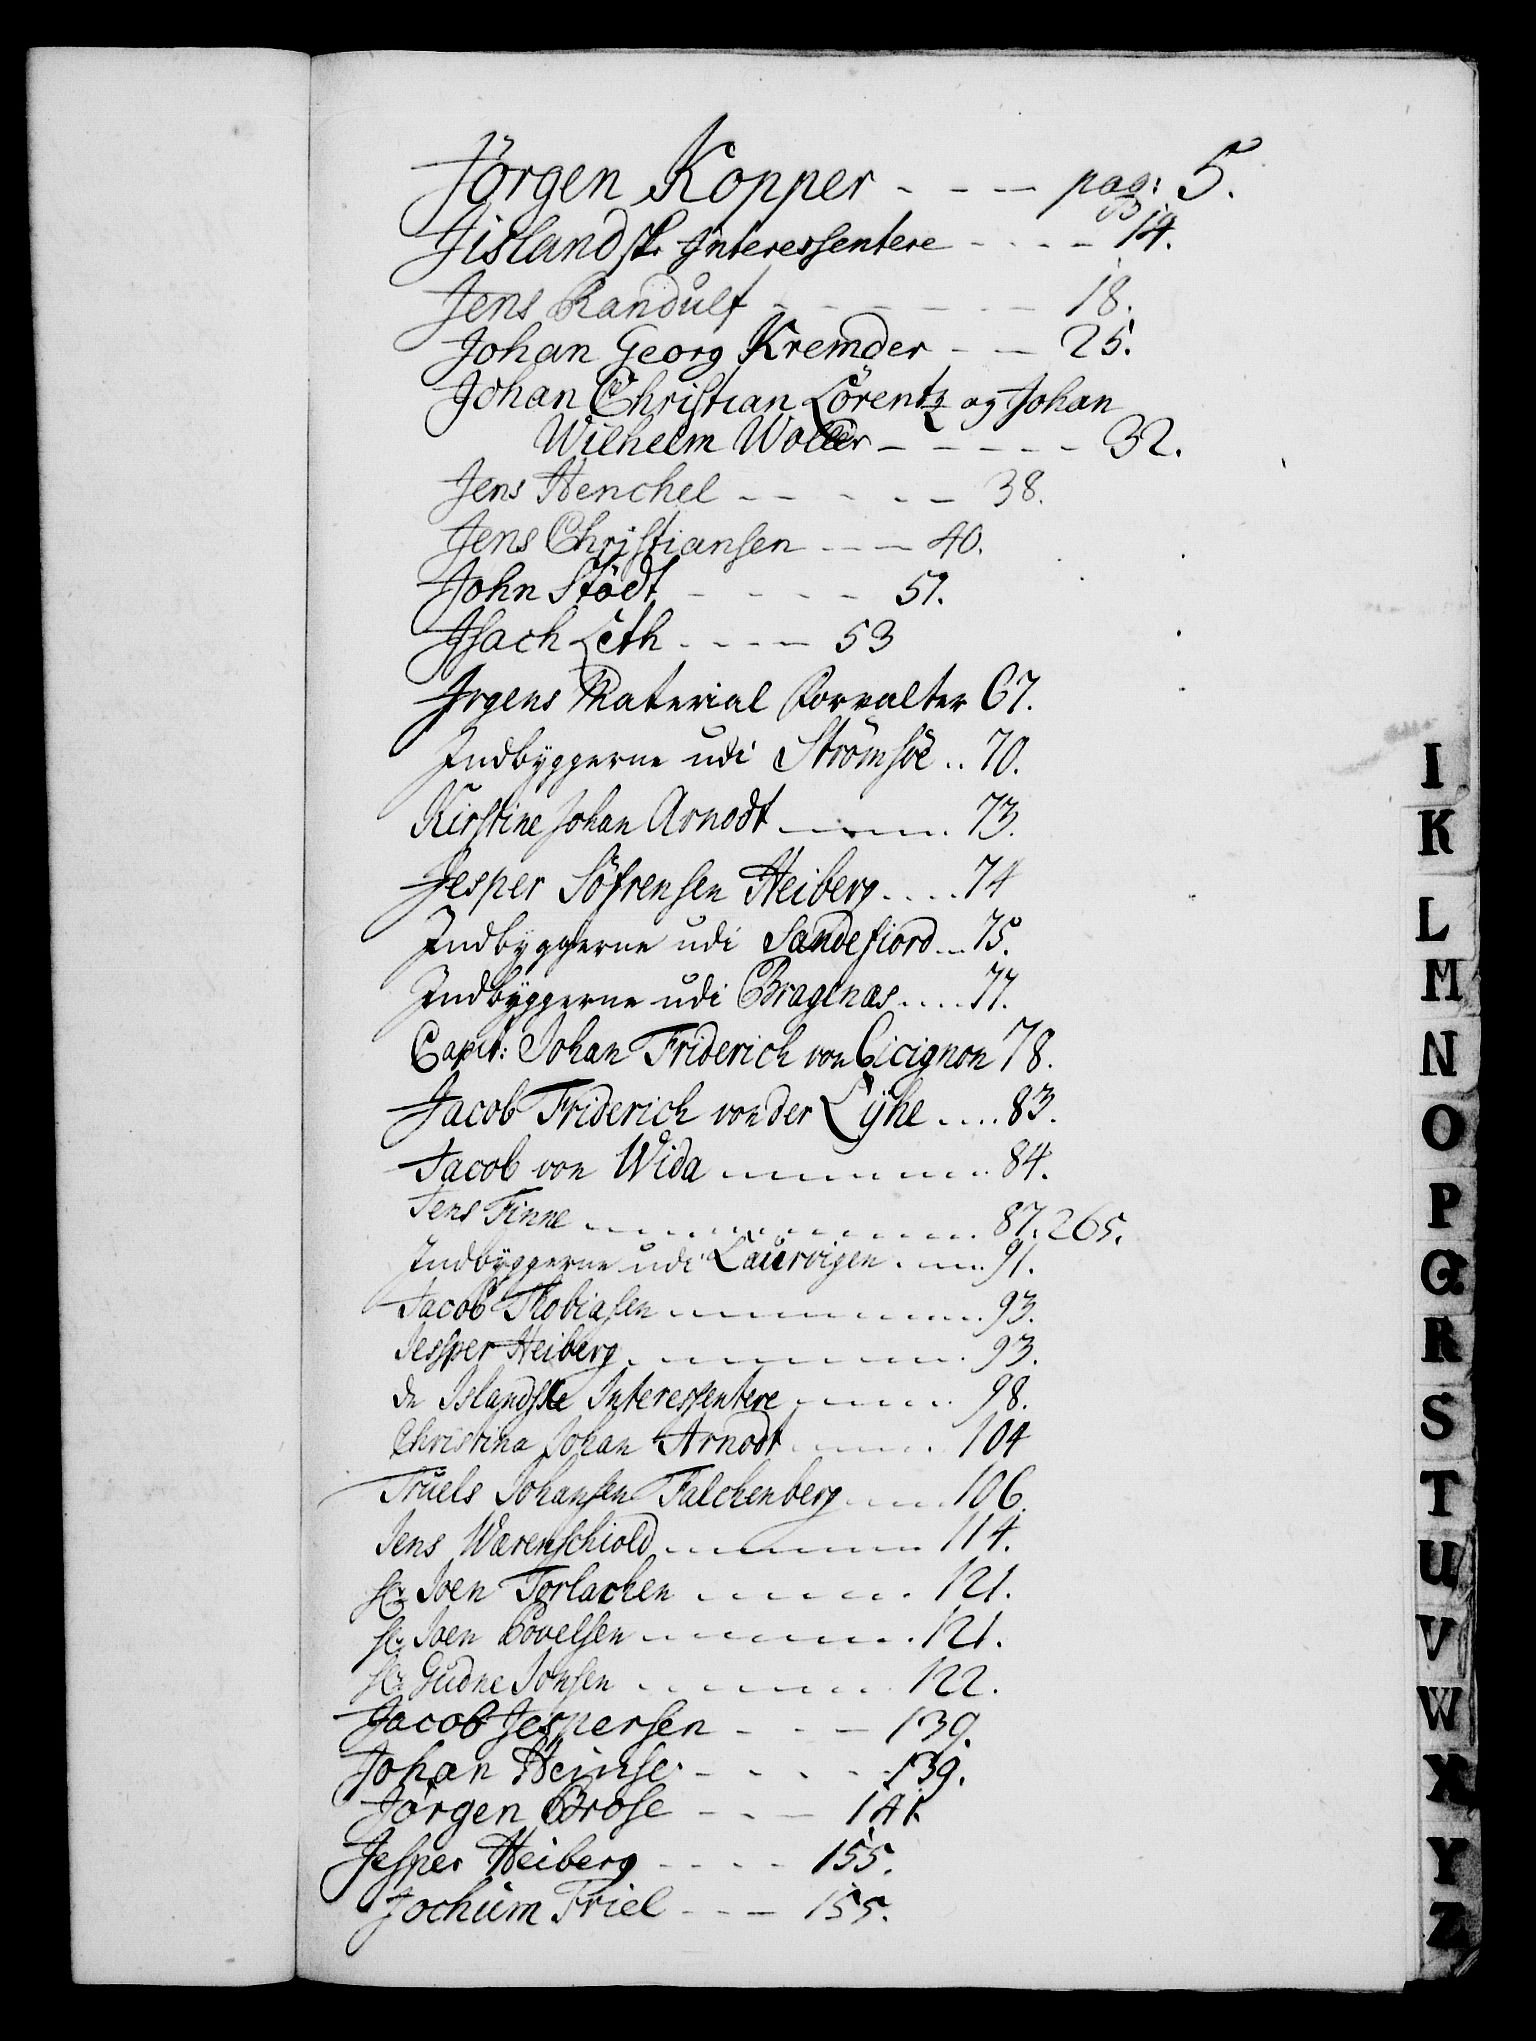 Jörgen Kopper - - - pag: 5.
Jislandsk. Interessentere - - - - 14.
Jens Randulf - - - - - - 18.
Johan Georg Kremder - - 25.
Johan Christian Lörentz og Johan
Wilhelm Woller - - - - - 32.
Jens Henchel - - - - - 38.
Jens Christiansen - - - 40.
John Stödt - - - - - 51.
Isach Leth - - - - 53
Irgens Material Forvalter 67.
Indbyggerne udi Strömsöe .. 70.
Kirstine Johan Arnodt - - - - . 73.
Jesper Söfrensen Heiberg . . . . 74
Indbyggerne udi Sandefiord ... 75.
Indbyggerne udi Bragenæs . . . . 77.
Capit: Johan Friderich von Cicignon 78.
Jacob Friderich von der Lÿhe . . . . 83.
Jacob von Wida - - - - - - - 84.
Jens Finne - - - - - - - - - 87. 265.
Indbyggerne udi Laurvigen . - - - 91.
Jacob Thobiasen - - - - - - - - 93.
Jesper Heiberg - - - - - - - - 93.
de Islandske Interessentere - - - - 98.
Christina Johan Arnodt - - - - 104
Truels Johansen Falchenberg - - - 106.
Jens Warenschiold - - - - - - 114.
sr. Joen Torlacken - - - - - - 121.
sr. Joen Povelsen - - - - - - - 121.
sr. Gudne Jonsen - - - - - - - 122.
Jacob Jespersen - - - 139.
Johan Heinse - - - - - 139.
Jörgen Brose - - - 141.
Jesper Heiberg - - - - 155.
Jochum Friel - - - 155.
I
K
L
M
N
O
P
Q
R
S
T
U
V
W
X
Y
Z